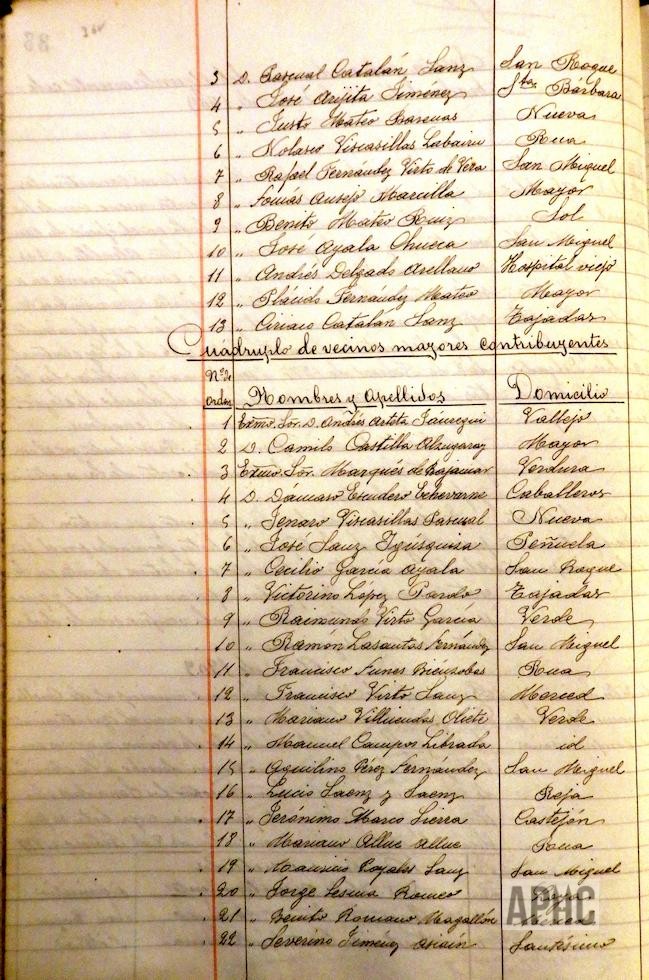 3 D. Pascual Catalán Sanz San Roque
4 „ José Arijita Jiménez Sta Bárbara
5 „ Justo Mateo Bareas Nueva
6 „ Nolasco Viscasillas Labairu Rua
7 „ Rafael Fernández Virto de Vera San Miguel
8 „ Tomás Ausejo Marcilla Mayor
9 „ Benito Mateo Ruiz Sol
10 „ José Ayala Chueca San Miguel
11 „ Andrés Delgado Arellano Hospital viejo
12 „ Plácido Fernández Mateo Mayor
13 „ Ciriaco Catalán Sanz Tajadas
Cuádruplo de vecinos mayores contribuyentes
Nº de orden Nombres y apellidos Domicilio
1 Exmo. Sor. D. Andrés Arteta Jáuregui Vallejo
2 D. Camilo Castilla Alzugaray Mayor
3 Exmo. Sor. Marqués de Bajamar Verdura
4 D. Dámaso Escudero Echevarne Caballeros
5 „ Jenaro Viscasillas Pascual Nueva
6 „ José Sanz Igúsquiza Peñuela
7 „ Cecilio García Ayala San Roque
8 „ Victorino López Pardo Tajadas
9 „ Raimundo Virto García Verde
10 „ Ramón Lasantas Fernández San Miguel
11 „ Francisco Funes Bienzobas Rua
12 „ Francisco Virto Sanz Merced
13 „ Mariano Villuendas Olieti Verde
14 „ Manuel Campos Librada id
15 „ Aquilino Pérez Fernández San Miguel
16 „ Lucio Saenz y Saenz Reja
17 „ Jerónimo Marco Sierra Castejón
18 „ Mariano Alluc Alluc Rua
19 „ Mauricio Poyales Sanz San Miguel
20 „ Jorge Sesma Romeo
21 „ Benito Romano Magallón Merced
22 „ Severino Jiménez Asiain Santísimo
APHC